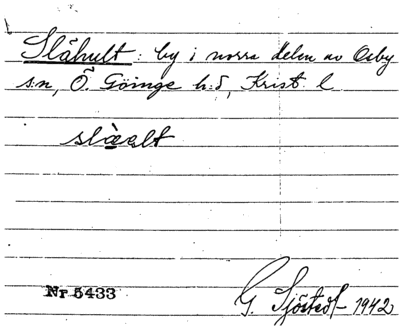 Slåhult: by i norra delen av Osby
s:n, Ö. Göinge h:d, Krist. l
slàalt
Nr 5433
G. Sjöstedt 1942